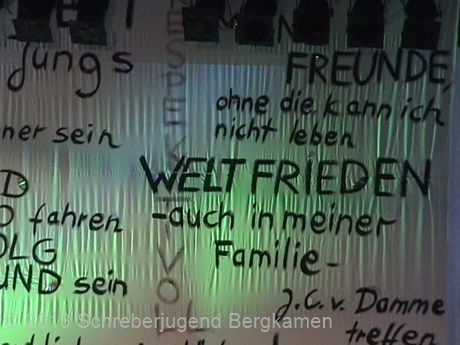 Jungs
FREUNDE,
ohne die kann ich
nicht leben
ner sein
WELTFRIEDEN
D
O fahren
-auch in meiner
OLG
Familie-
UND sein
J.C.v. Damme
treffen
RESPEKTVOLL
Schreberjugend Bergkamen